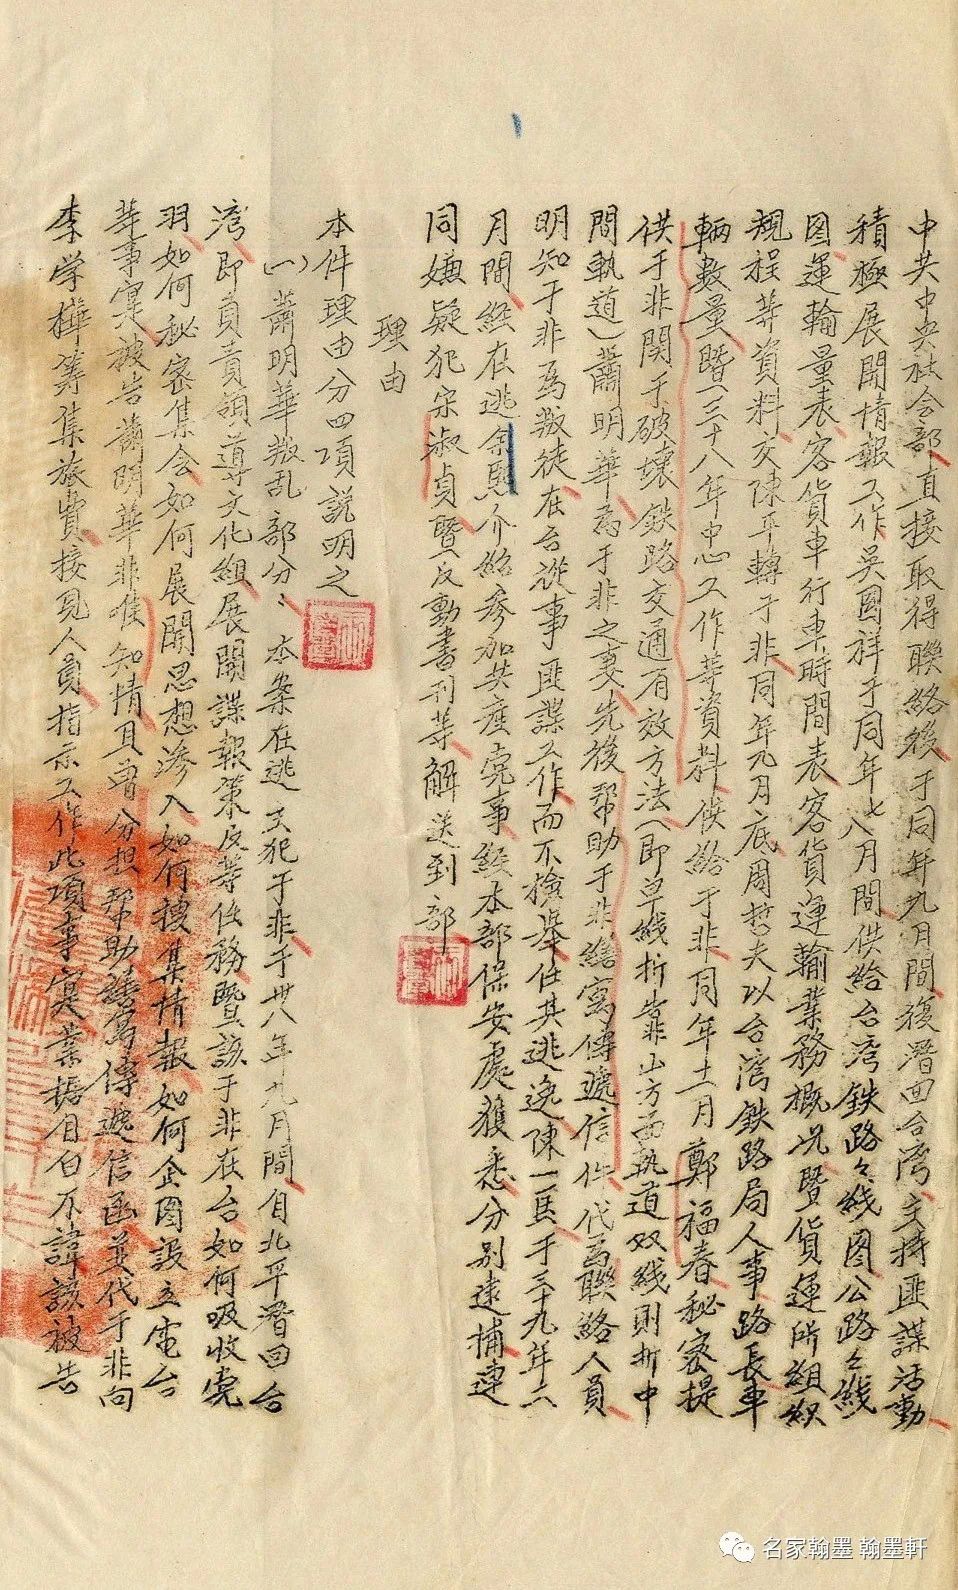 中共中央社会部直接取得聯絡後于同年九月間復潛回台湾主持匪諜活動
積極展開情報工作吳国祥于同年七八月間供給台湾鉄路々線图公路々綫
图運輸量表客貨車行車時間表客貨運輸業務概况暨貨運所組織
規程等資料交陳平轉于非同年九月底周哲夫以台湾鉄路局人事路長車
輛數量暨三十八年中心工作等資料供給于非同年十一月鄭福春秘密提
供于非関于破壞鉄路交通有效方法(即单线折靠山方面軌道双线則折中
間軌道)蕭明華為于非之妻先後帮助于非繕寫傳遞信件代為聯絡人員
明知于非為叛徒在台從事匪諜工作而不檢举任其逃逸陳一馬于三十九年二
月間經在逃余熙介紹參加共產党事經本部保安處獲悉分别逮捕連
同嫌疑犯宋淑貞暨反動書刊等解送到部
理由
本件理由分四項説明之
(一)蕭明華叛乱部分：本案在逃主犯于非于卅八年九月間自北平潛回台
湾即負責領導文化組展開諜報策反等任務暨該于非在台如何吸收党
羽如何秘密集会如何展開思想滲入如何搜集情報如何企图設立電台
等事寔被告蕭明華非惟知情且曾分担帮助繕寫傳遞信函並代于非向
李学樺筹集旅費接見人員指示工作此項事寔業據自白不諱該被告
名家翰墨 翰墨軒